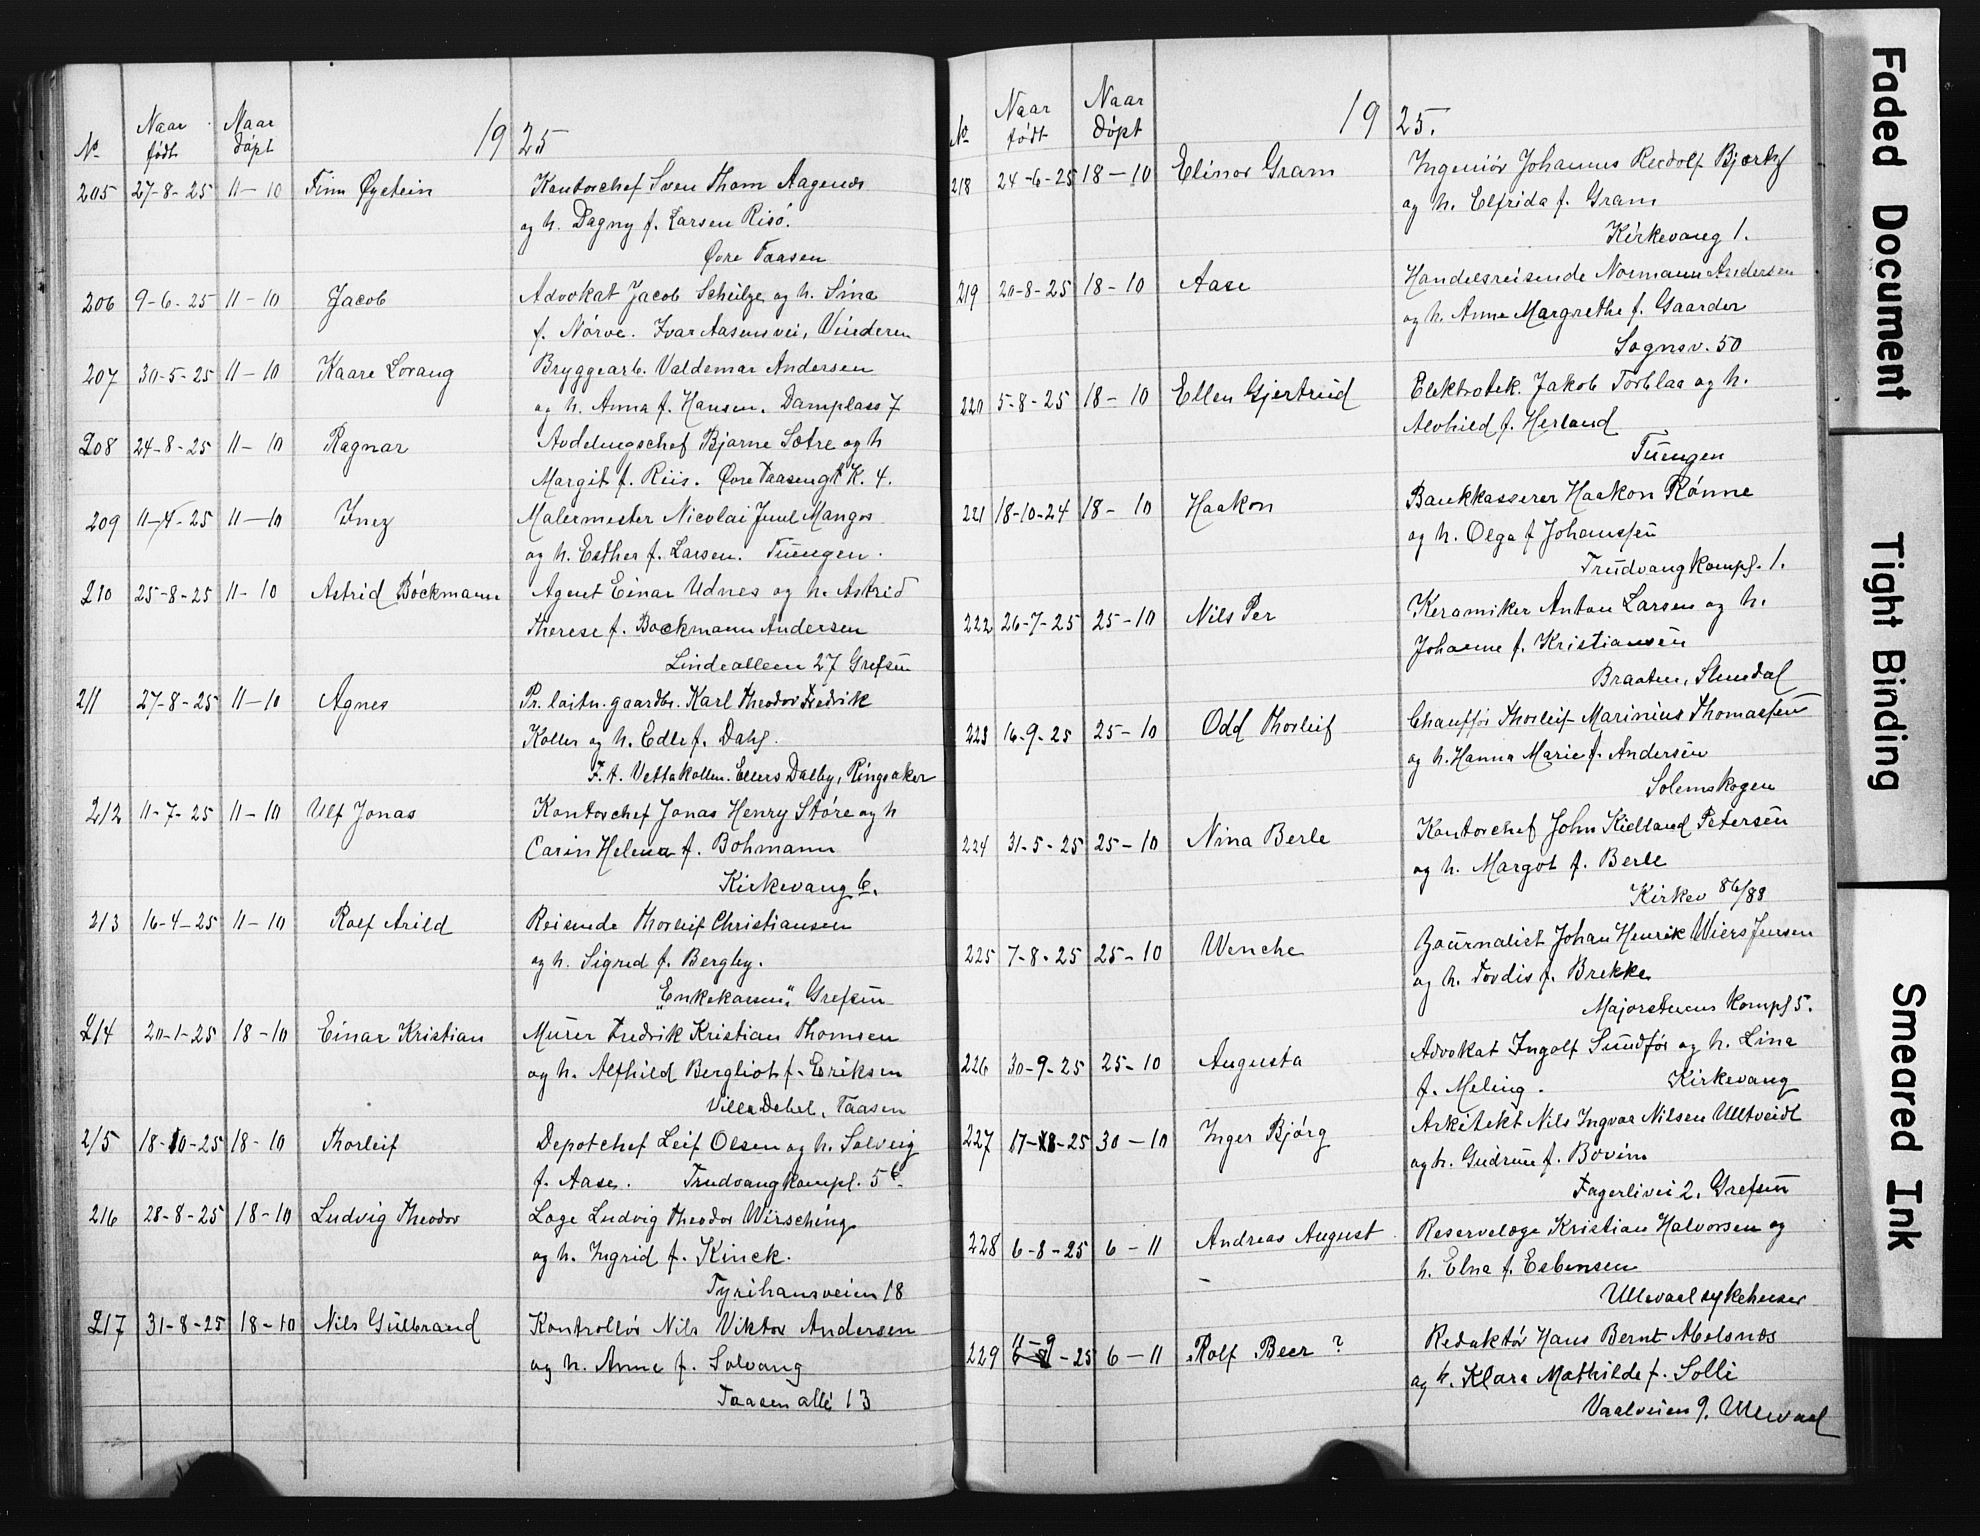 19 25
No Naar født Naar døpt
205 27-8-25 11-10 Finn Øystein Kontorchef Sven Thom Aagenæs
og h. Dagny f. Larsen Risö.
Øvre Taasen
206 9-6-25 11-10 Jacob Advokat Jacob Scheilze og h. Sina
f. Nørve. Ivar Aasensvei, Vinderen
207 30-5-25 11-10 Kaare Lorang Bryggearb. Valdemar Andersen
og h. Anna f. Hansen. Damplass 7
208 24-8-25 11-10 Ragnar Avdelingschef Bjarne Sætre og h
Margit f. Riis. Øvre Taasen K. 4.
209 11-4-25 11-10 Inez Malermester Nicolai Juul Mangor
og h. Esther f. Larsen. Tuengen.
210 25-8-25 11-10 Astrid Böckmann Agent Einar Udnes og h. Astrid
Therese f. Bockmann Andersen
Lindealleen 27 Grefsen
211 27-8-25 11-10 Agnes Pr. løitn. gaardbr. Karl Theodor Fredrik
Koller og h. Edle f. Dahl.
F. t. Vettakollen. Ellers Dalby, Ringsaker
212 11-7-25 11-10 Ulf Jonas Kontorchef Jonas Henry Störe og h
Carin Helena f. Bohmann
Kirkevang 6.
213 16-4-25 11-10 Rolf Arild Reisende Thorleif Christiansen
og h. Sigrid f. Bergby.
"Enkekassen" Grefsen
214 20-1-25 18-10 Einar Kristian Murer Fredrik Kristian Thomsen
og h. Alfhild Bergliot f. Eriksen
Villa Dehel, Taasen
215 18-10-25 18-10 Thorleif Depotchef Leif Olsen og h. Solveig
f. Aase. Trudvangkompl. 5
216 28-8-25 18-10 Ludvig Theodor Læge Ludvig Theodor Wirsching
og h. Ingrid f. Kinck.
Tyrihansveien 18
217 31-8-25 18-10 Nils Gulbrand Kontrollör Nils Viktor Andersen
og h. Anne f. Solvang
Taasen allé 13
19 25.
No Naar født Naar døpt
218 24-6-25 18-10 Elinor Gram Ingeniør Johannes Rudolf Bjerke
og h. Elfrida f. Gram
Kirkevang 1.
219 20-8-25 18-10 Aase Handelsreisende Normann Andersen
og h. Anna Margrethe f. Gaarder
Sognsv. 50
220 5-8-25 18-10 Ellen Gjertrud Elektrotek. Jakob Torblaa og h.
Alvhild f. Herland
Tuengen
221 18-10-24 18-10 Haakon Bankkasserer Haakon Rönne
og h. Olga f Johanssen
Trudvangkompl. 1.
222 26-7-25 25-10 Nils Per Keramiker Anton Larsen og h.
Johanne f. Kristiansen
Braaten, Slemdal
223 16-9-25 25-10 Odd Thorleif Chaufför Thorleif Marinius Thomassen
og h. Hanna Marie f. Andersen
Solemskogen
224 31-5-25 25-10 Nina Berle Kontorchef John Kielland Petersen
og h. Margot f. Berle
Kirkev 86/88
225 7-8-25 25-10 Wenche Journalist Johan Henrik Wiers Jensen
og h. Tordis f. Brekke
Majorstuens kompl 5.
226 30-9-25 25-10 Augusta Advokat Ingolf Sundför og h. Lina
f. Meling. Kirkevang
227 17-8-25 30-10 Inger Bjørg Arkitekt Nils Ingvar Nilsen Ulltveidt
og h. Gudrun f. Bovim
Fagerlivei 2, Grefsen
228 6-8-25 6-11 Andreas August Reservelæge Kristian Halvorsen og
h. Elna f. Esbensen
Ullevaal sykehuser
229 6-9-25 6-11 Rolf Beer ? Redaktör Hans Bernt Abelsnæs
og h. Klara Mathilde f. Solli
Vaalveien 9. Ullevaal
Faded Document
Tight Binding
Smeared Ink